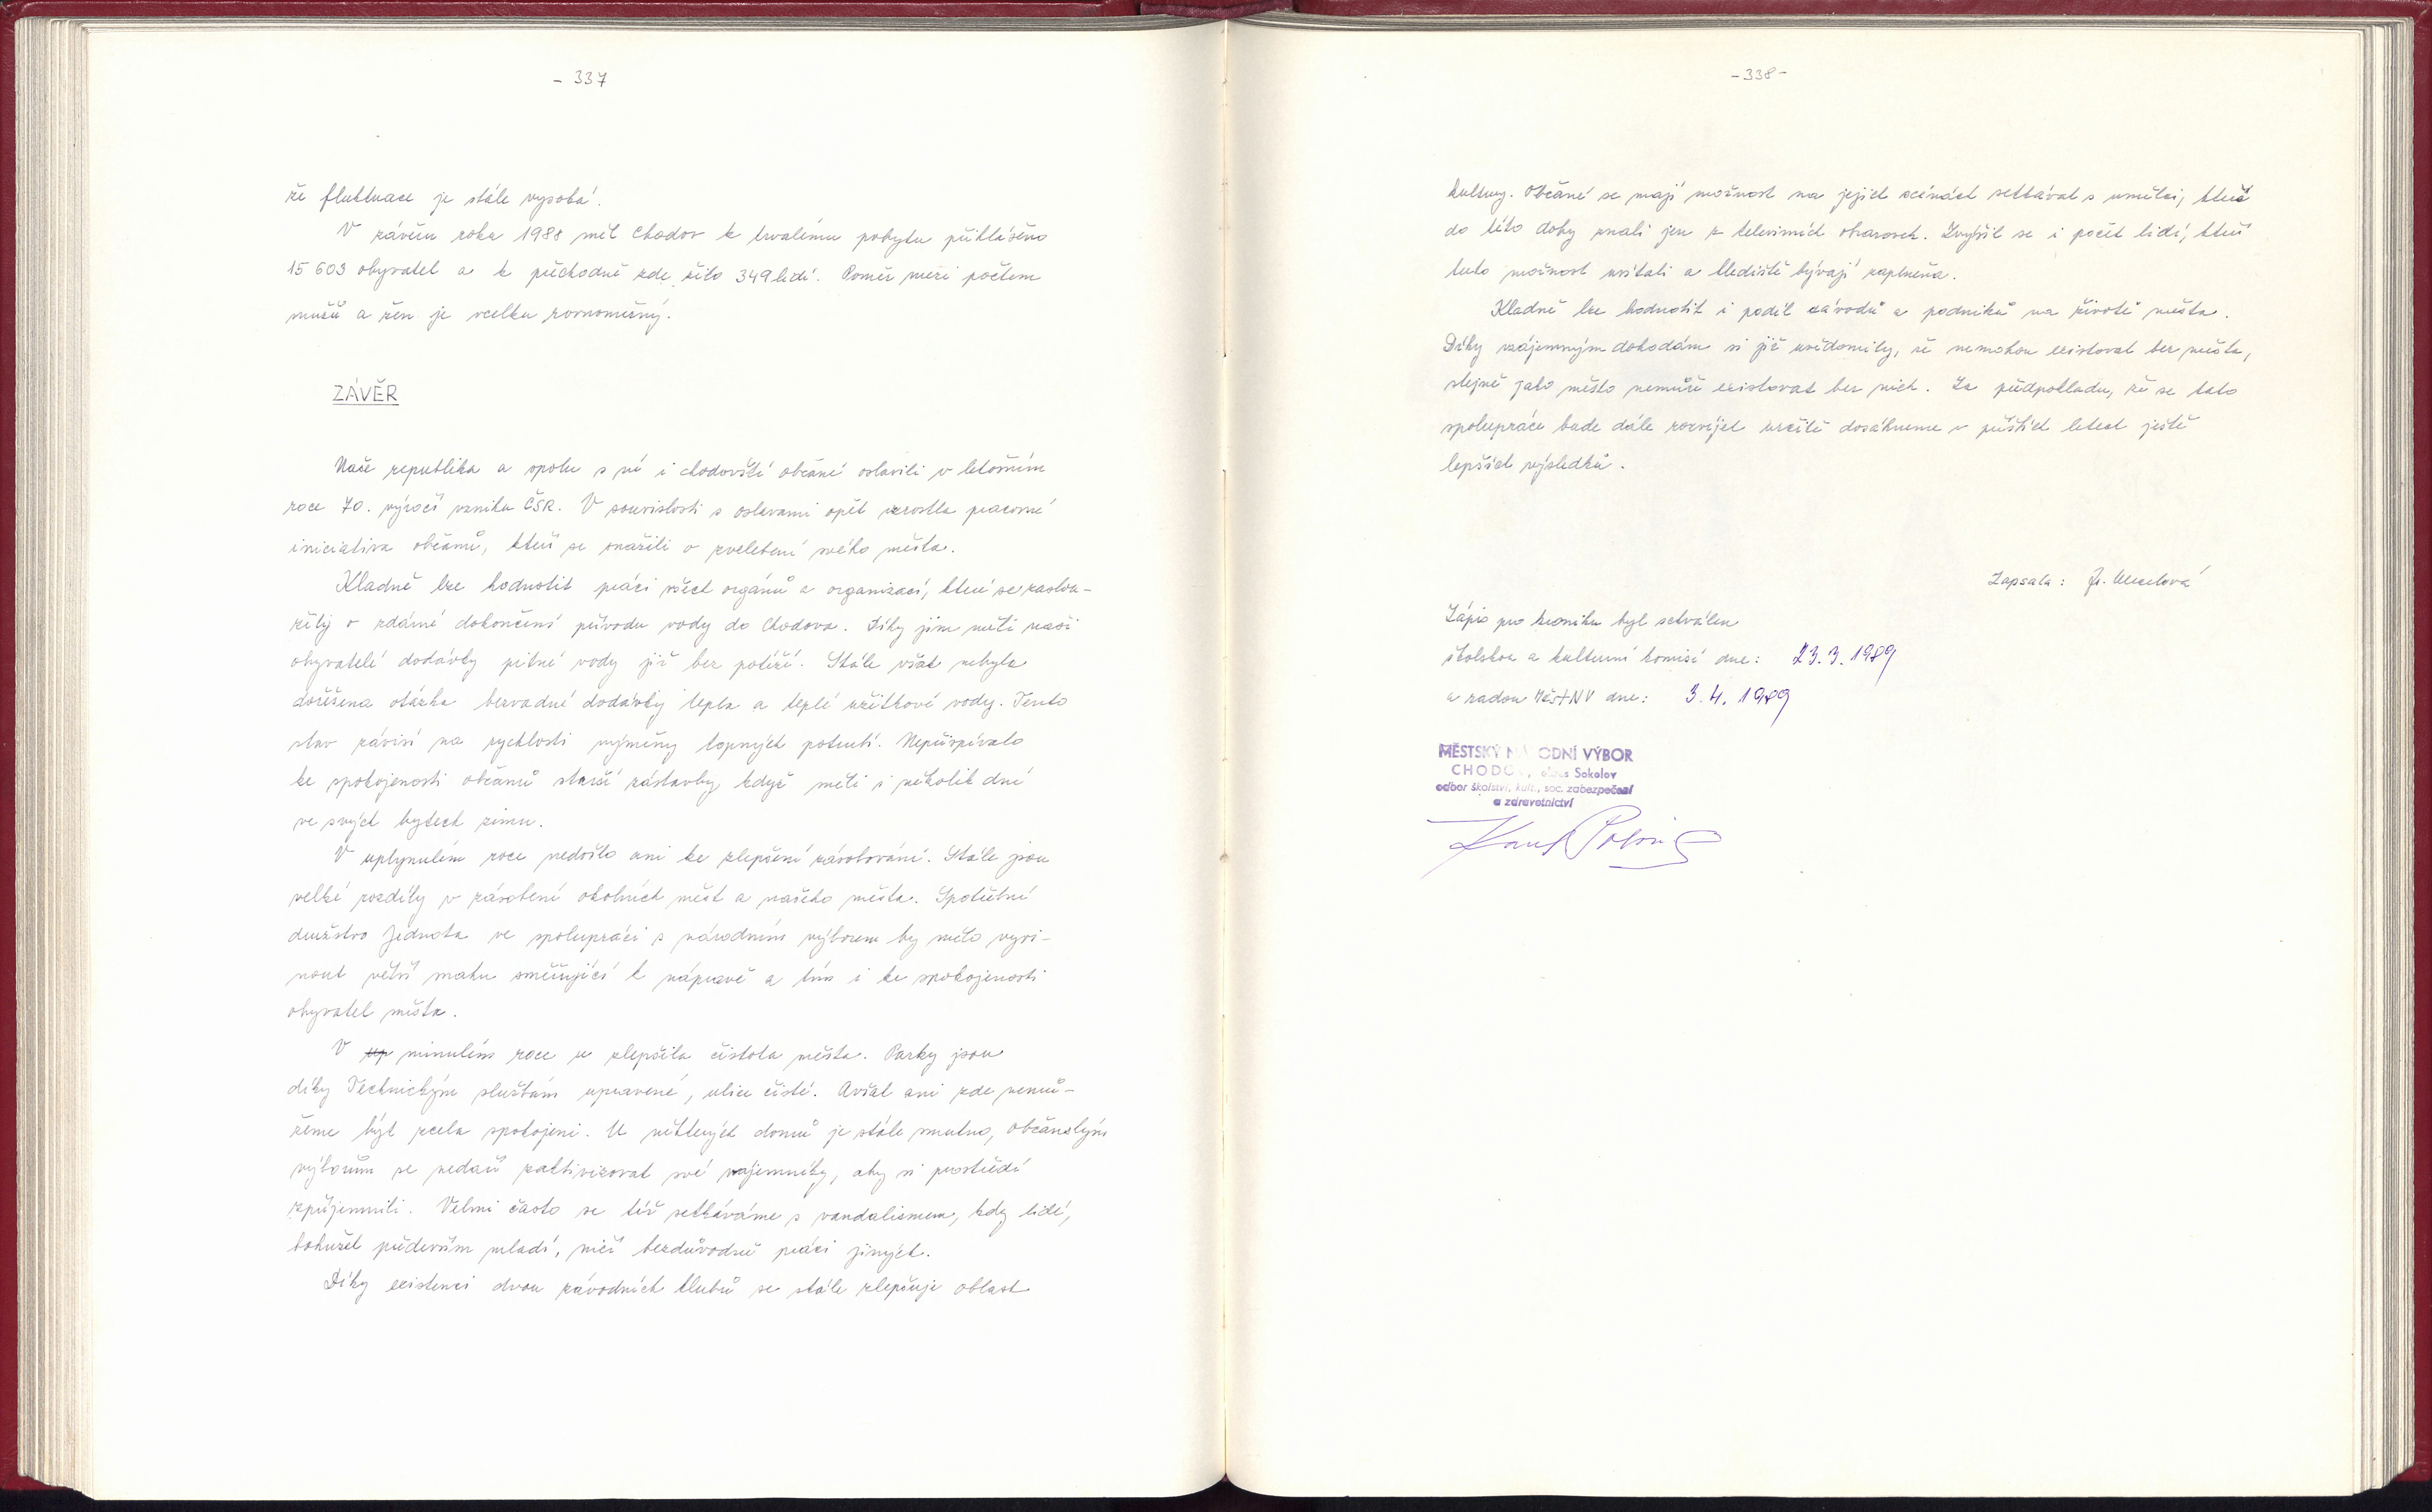 - 337
že fluktuace je stále vysoká.
V závěru roku 1988 měl Chodov k trvalému pobytu přihlášeno
15 603 obyvatel a k přechodně zde žilo 349 lidí. Poměr mezi počtem
mužů a žen je vcelku rovnoměrný.
ZÁVĚR
Naše republika a spolu s ní i chodovští občané oslavili v letošním
roce 70. výročí vzniku ČSR. V souvislosti s oslavami opět vzrostla pracovní
iniciativa občanů, kteří se snažili o zvelebení svého města.
Kladně lze hodnotit práci všech orgánů a organizací, které se zaslou-
žily o zdárné dokončení přívodu vody do Chodova. Díky jim měli naši
obyvatelé dodávky pitné vody již bez potíží. Stále však nebyla
dořešena otázka bezvadné dodávky tepla a teplé užitkové vody. Tento
stav závisí na rychlosti výměny topných potrubí. Nepřispívalo
ke spokojenosti občanů starší zástavby, když měli i několik dní
ve svých bytech zimu.
V uplynulém roce nedošlo ani ke zlepšení zásobování. Stále jsou
velké rozdíly v zásobení okolních měst a našeho města. Spotřební
družstvo Jednota ve spolupráci s národním výborem by mělo vyvi-
nout větší snahu směřující k nápravě a tím i ke spokojenosti
obyvatel města.
V minulém roce se zlepšila čistota města. Parky jsou
díky Technickým službám upravené, ulice čisté. Avšak ani zde nemů-
žeme být zcela spokojeni. U některých domů je stále smutno, občanským
výborům se nedaří zaktivizovat své nájemníky, aby si prostředí
zpříjemnili. Velmi často se též setkáváme s vandalismem, kdy lidé,
bohužel především mladí, ničí bezdůvodně práci jiných.
Díky existenci dvou závodních klubů se stále zlepšuje oblast
- 338 -
kultury. Občané se mají možnost na jejich scénách setkávat s umělci, které
do této doby znali jen z televizních obrazovek. Zvýšil se i počet lidí, kteří
tuto možnost uvítali a hlediště bývají zaplněna.
Kladně lze hodnotit i podíl závodů a podniků na životě města.
Díky vzájemným dohodám si již uvědomily, že nemohou existovat bez města,
stejně jako město nemůže existovat bez nich. Za předpokladu, že se tato
spolupráce bude dále rozvíjet určitě dosáhneme v příštích letech ještě
lepších výsledků.
Zapsala:
Zápis pro kroniku byl schválen
školskou a kulturní komisí dne: 23. 3. 1989
a radou MěstNV dne: 3. 4. 1989
MĚSTSKÝ NÁRODNÍ VÝBOR
CHODOV, okres Sokolov
odbor školství, kult., soc. zabezpečení
a zdravotnictví